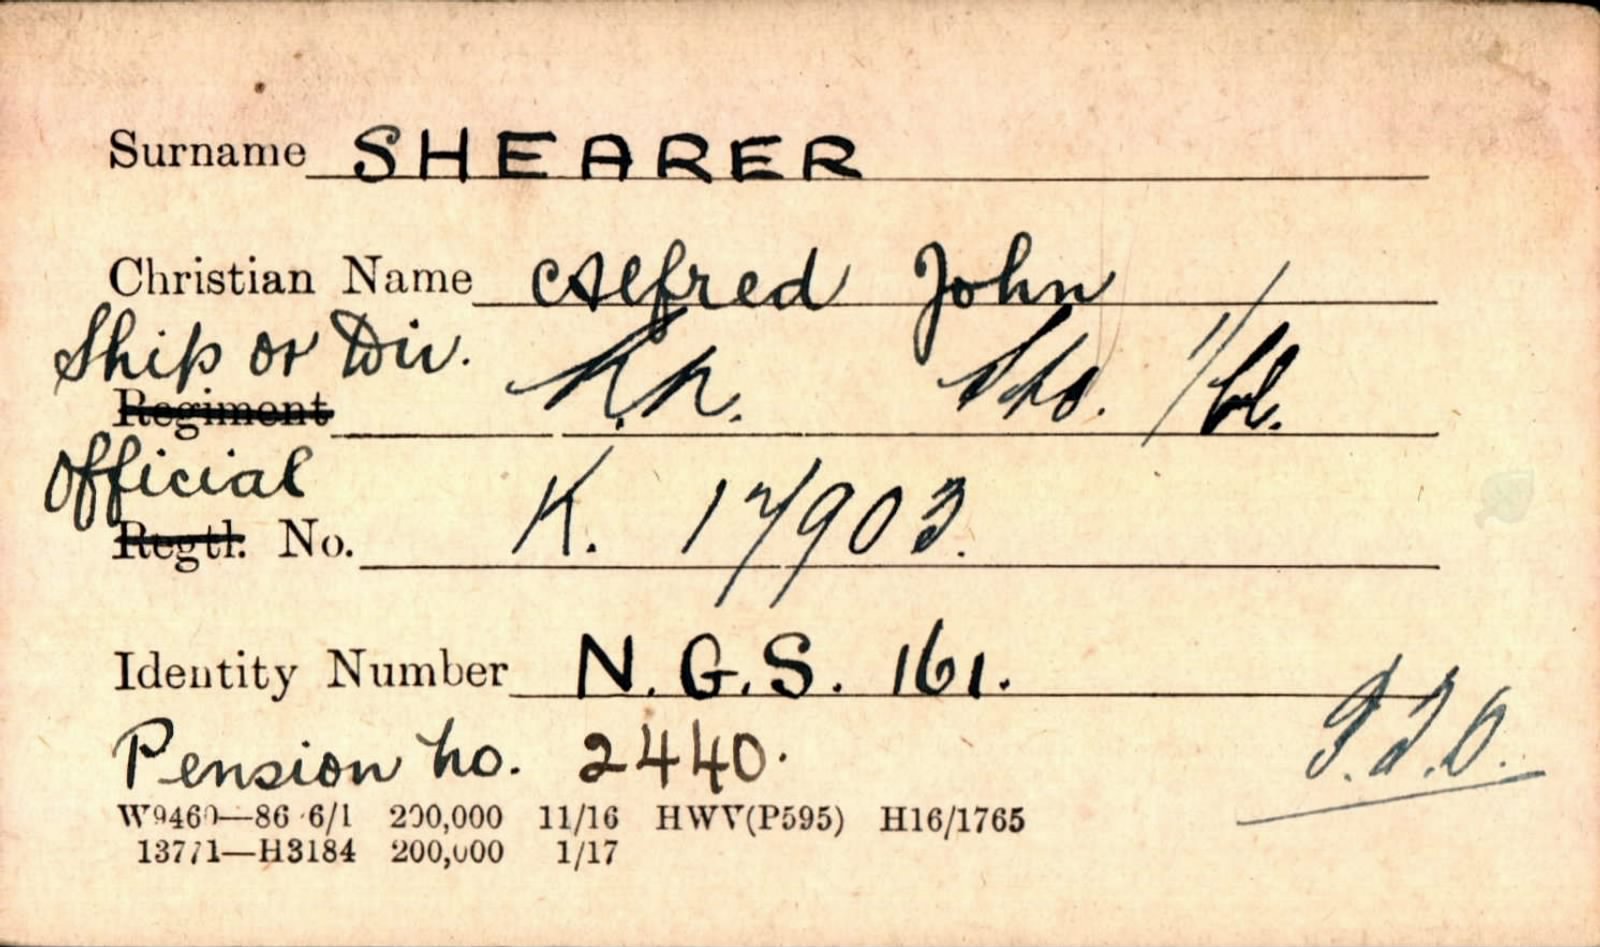 Surname SHEARER
Christian Name Alfred John
Ship or Div. R.N. Sto. 1/cl.
Regiment
Official
Regtl. No. K. 17903.
Identity Number N.G.S. 161.
Pension No. 2440.
W9460—86 6/1 200,000 11/16 HWV(P595) H16/1765
13771—H3184 200,000 1/17